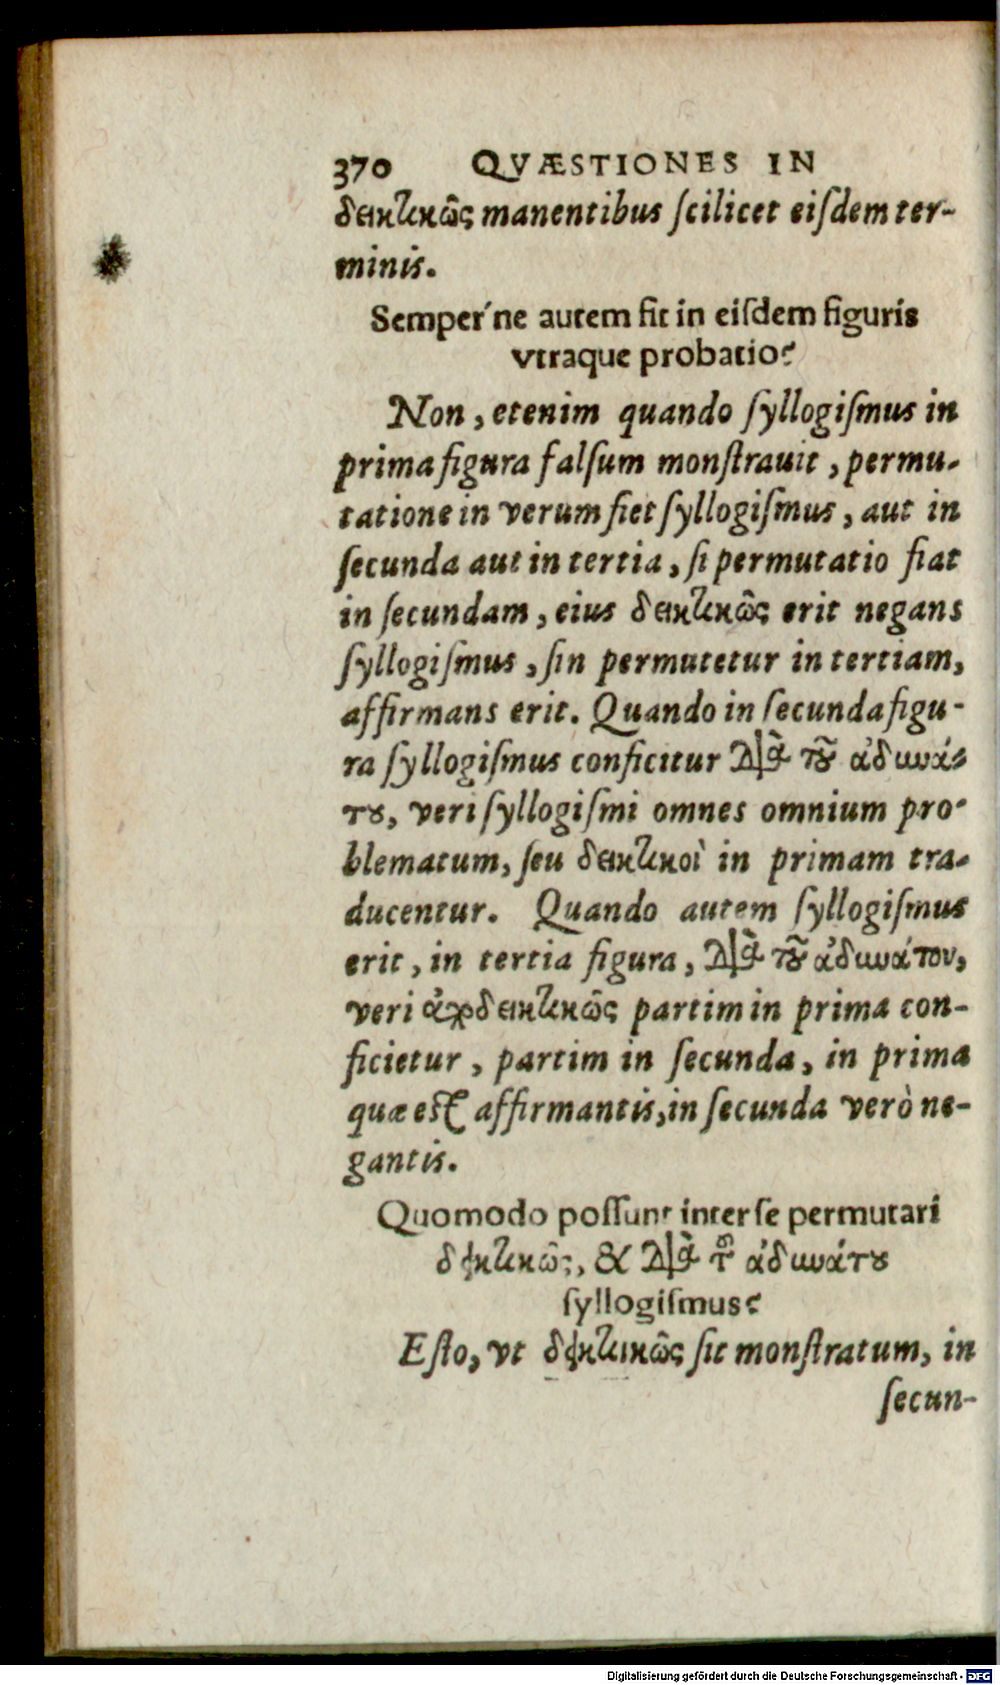 370 QVÆSTIONES IN
δεικτικῶς manentibus ſcilicet eiſdem ter-
minis.
Semper'ne autem fit in eiſdem figuris
vtraque probatio?
Non, etenim quando ſyllogiſmus in
prima figura falſum monſtrauit, permu-
tatione in verum fiet ſyllogiſmus, aut in
ſecunda aut in tertia, ſi permutatio fiat
in ſecundam, eius δεικτικῶς erit negans
ſyllogiſmus, ſin permutetur in tertiam,
affirmans erit. Quando in ſecunda figu-
ra ſyllogiſmus conficitur διὰ τοῦ ἀδυνά-
του, veri ſyllogiſmi omnes omnium pro-
blematum, ſeu δεικτικοὶ in primam tra-
ducentur. Quando autem ſyllogiſmus
erit, in tertia figura, διὰ τοῦ ἀδυνάτου,
veri ἀποδεικτικῶς partim in prima con-
ficietur, partim in ſecunda, in prima
quæ eſt affirmantis, in ſecunda verò ne-
gantis.
Quomodo poſſunt inter ſe permutari
δεικτικῶς, & διὰ τοῦ ἀδυνάτου
ſyllogiſmus?
Eſto, vt δεικτικῶς ſit monſtratum, in
ſecun-
Digitalisierung gefördert durch die Deutsche Forschungsgemeinschaft - DFG